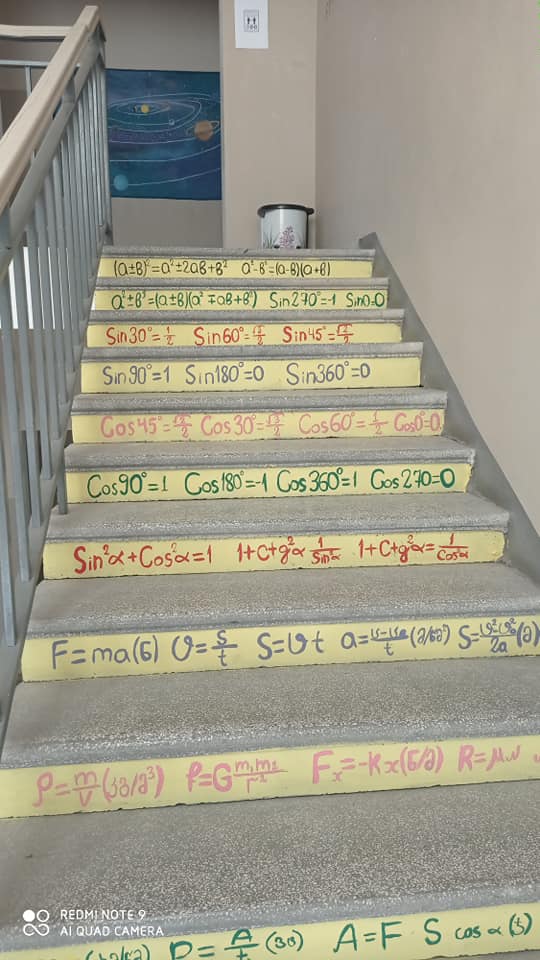 (a±b)²=a²±2ab+b² a²-b²=(a-b)(a+b)
a³±b³=(a±b)(a²∓ab+b²) Sin270°=-1 Sin0=0
Sin30°=1/2 Sin60°=√3/2 Sin45°=√2/2
Sin90°=1 Sin180°=0 Sin360°=0
Cos45°=√2/2 Cos30°=√3/2 Cos60°=1/2 Cos0°=0
Cos90°=1 Cos180°=-1 Cos360°=1 Cos270=0
Sin²α+Cos²α=1 1+c+g²α 1/Sin²α 1+c+g²α=1/Cos²α
F=ma(ნ) υ=s/t S=υt a=υ-υ₀/t(მ/წმ²) S=υ²-υ₀²/2a(მ)
ρ=m/V(კგ/მ³) F=G m₁m₂/r² Fₓ=-kx(ნ/მ) R=μN
P=A/t(ვტ) A=F S cosα(ჯ)
REDMI NOTE 9
AI QUAD CAMERA